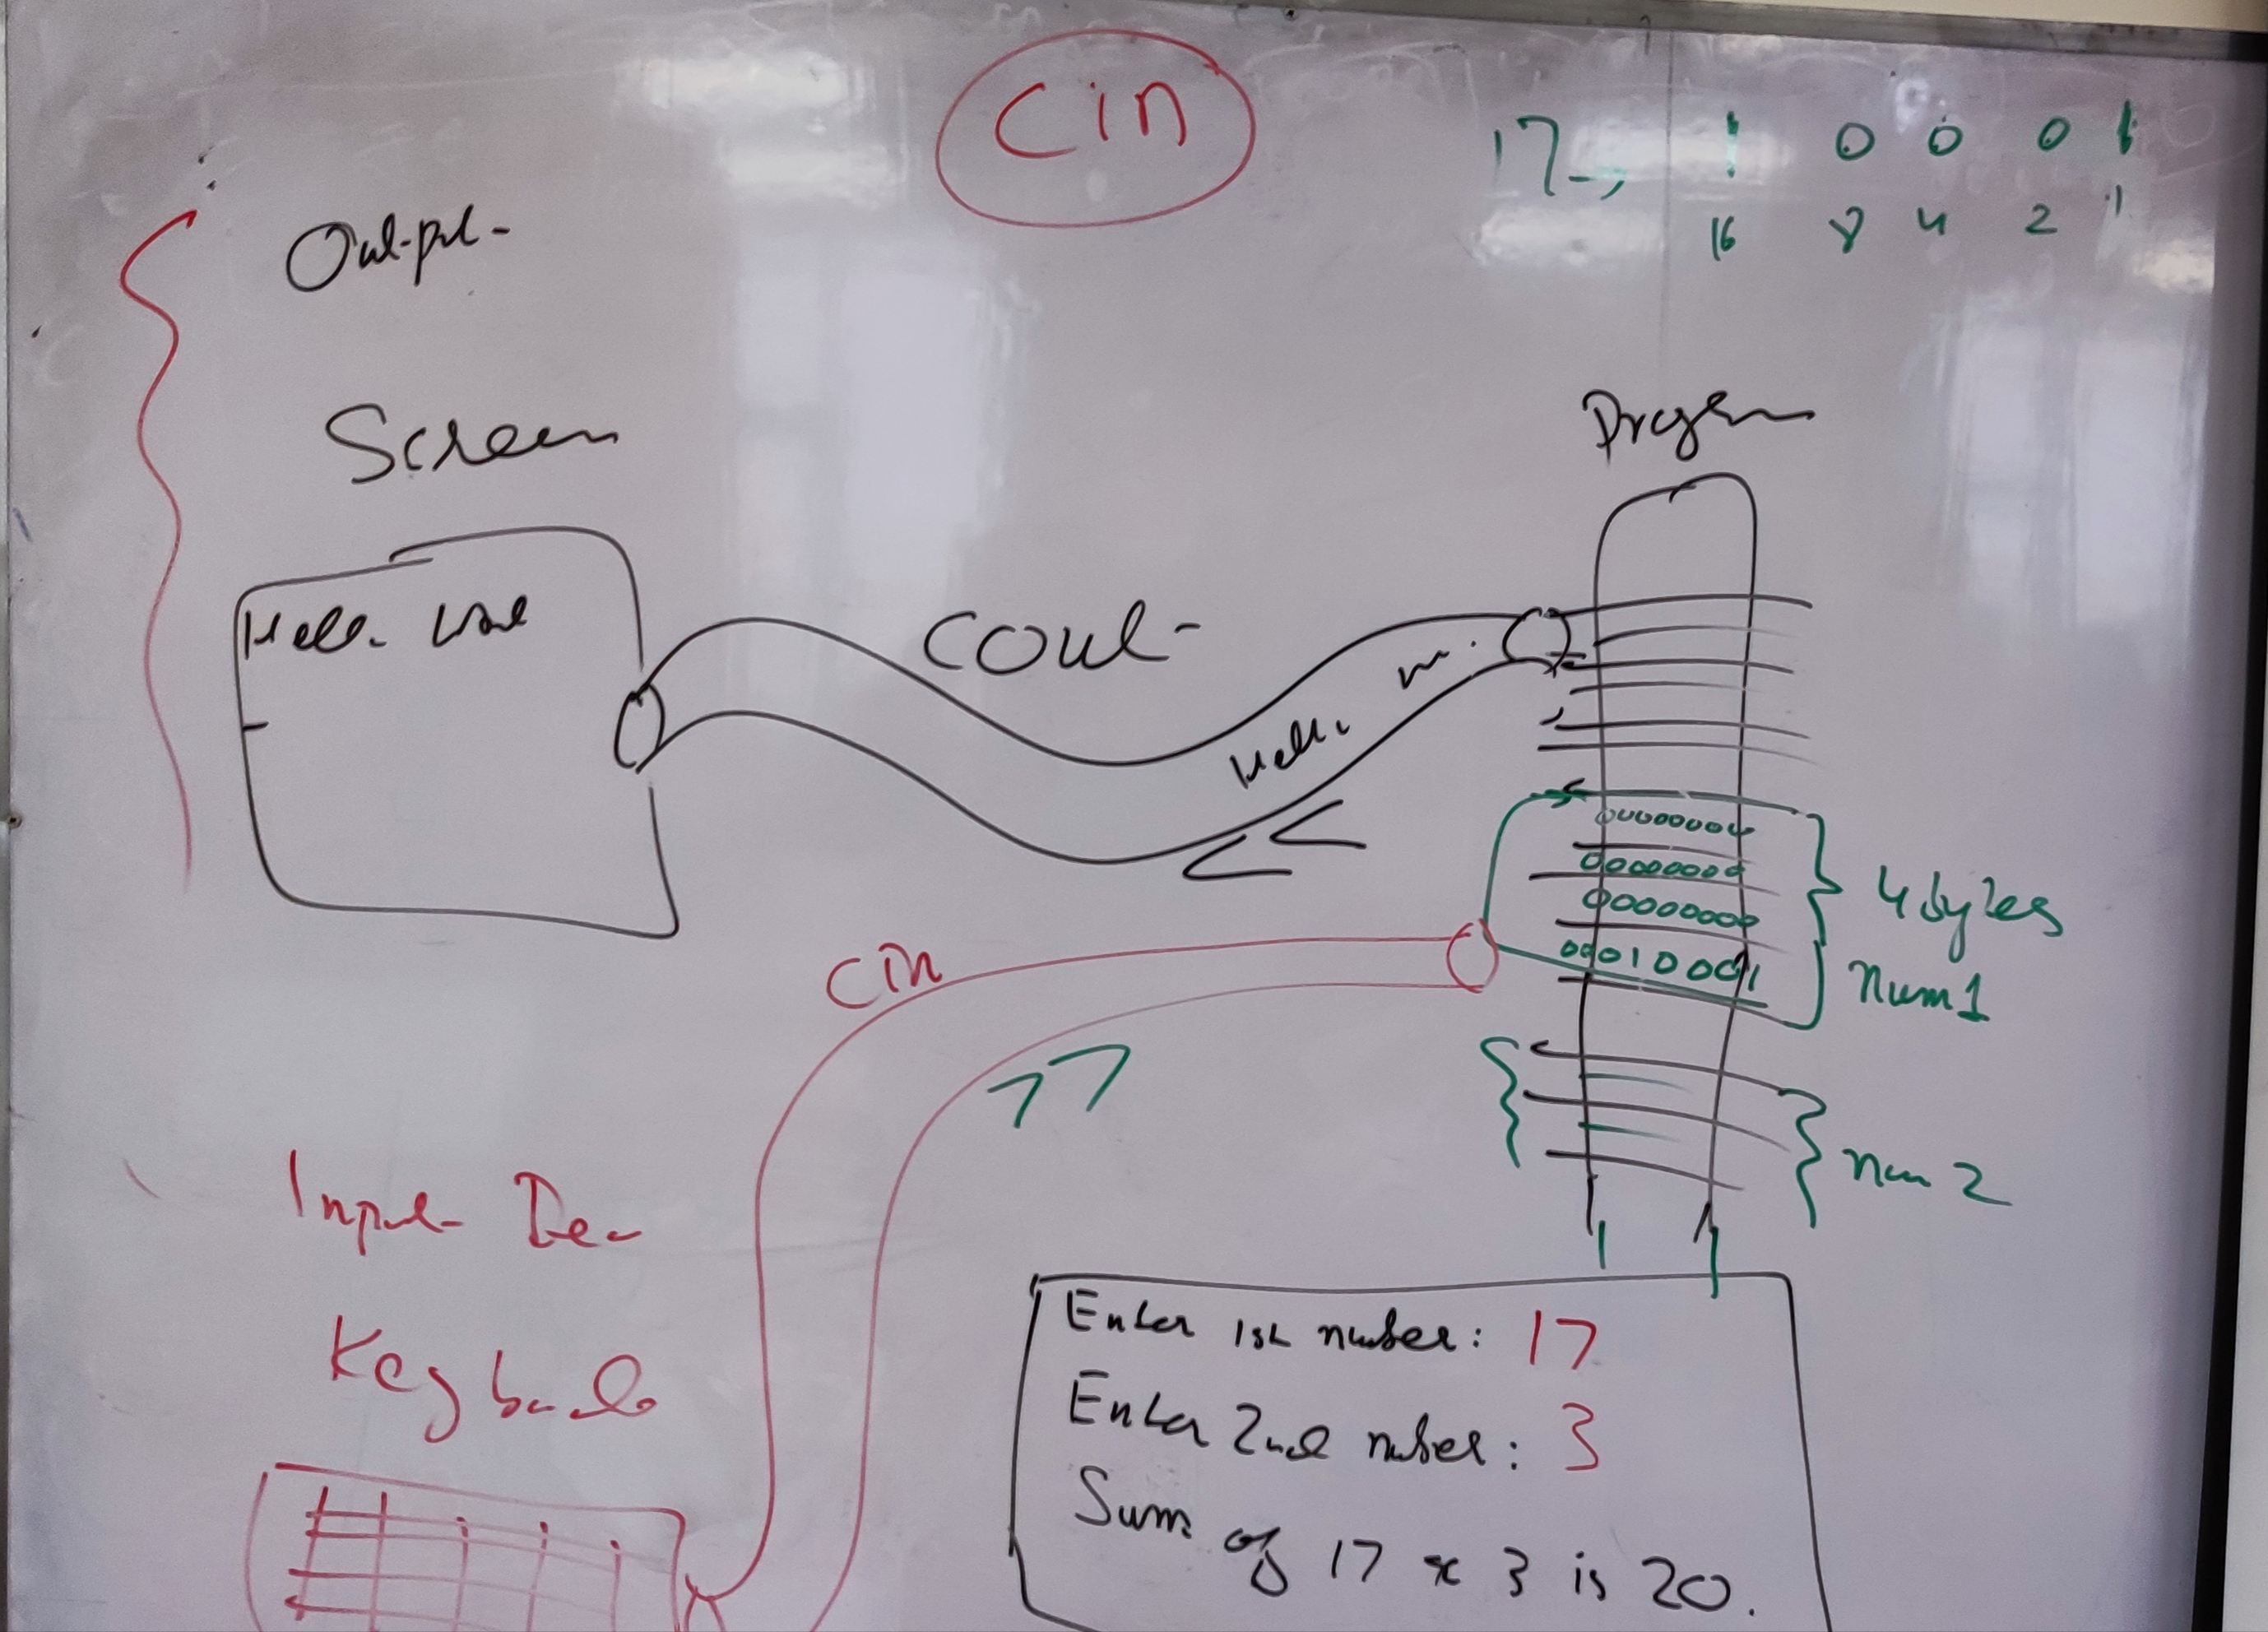 cin
17 → 1 0 0 0 1
16 8 4 2 1
Output
Screen
Program
Hello
cout
Hello
<<
00000000
00000000
00000000
00010001
4 bytes
num1
cin
>>
num 2
Input Dev
Keyboard
Enter 1st number: 17
Enter 2nd number: 3
Sum of 17 & 3 is 20.